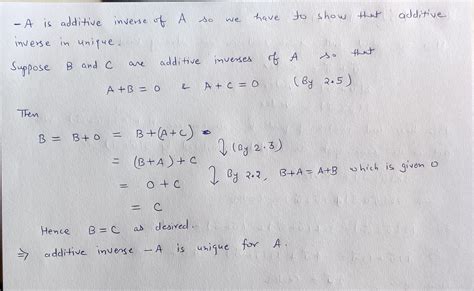 -A is additive inverse of A so we have to show that additive
inverse in unique.
Suppose B and C are additive inverses of A so that
A+B = 0 & A+C = 0 (By 2.5)
Then
B = B+0 = B+(A+C)
= (B+A)+C ↓ (By 2.3)
= 0+C ↓ By 2.2, B+A = A+B which is given 0
= C
Hence B=C as desired.
⇒ additive inverse -A is unique for A.